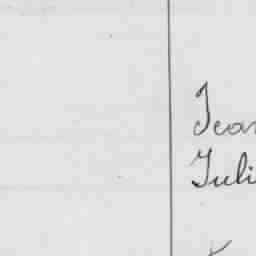 Jean
Juli